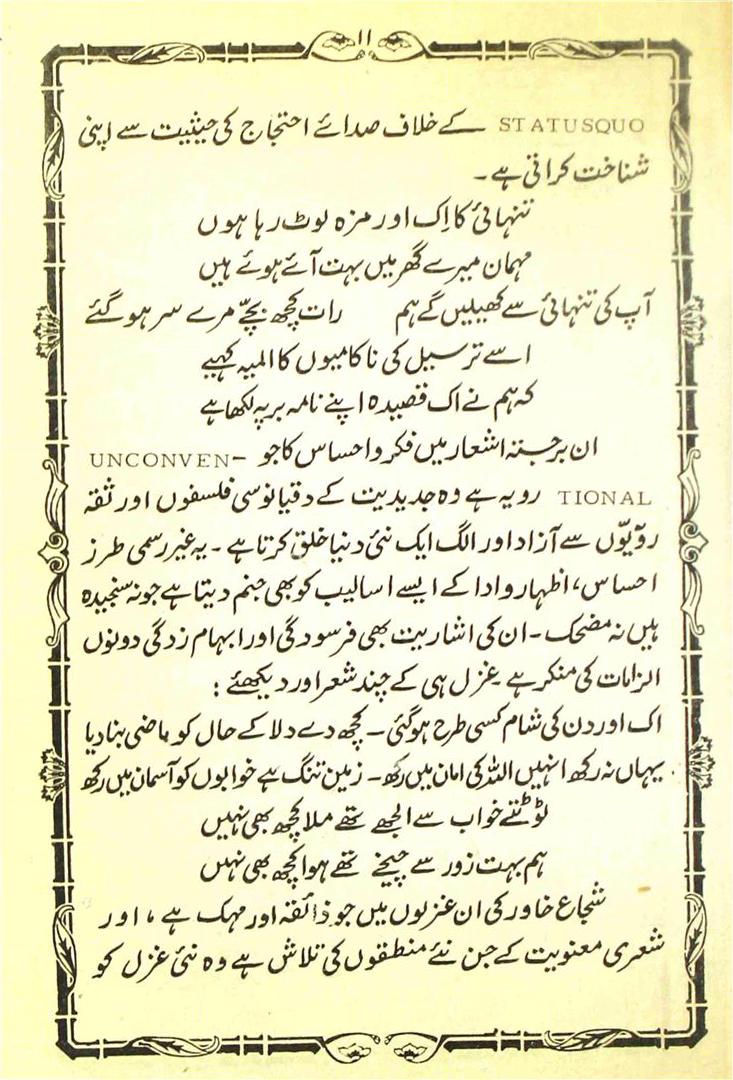 ۱۱
STATUSQUO کے خلاف صدائے احتجاج کی حیثیت سے اپنی
شناخت کراتی ہے۔
تنہائی کا اِک اور مزہ لوٹ رہا ہوں
مہمان میرے گھر میں بہت آئے ہوئے ہیں
آپ کی تنہائی سے کھیلیں گے ہم رات کچھ بچّے مرے سر ہو گئے
اسے ترسیل کی ناکامیوں کا المیہ کہیے
کہ ہم نے اک قصیدہ اپنے نامہ بر پہ لکھا ہے
ان برجستہ اشعار میں فکر و احساس کا جو UNCONVEN-
TIONAL رویہ ہے وہ جدیدیت کے دقیانوسی فلسفوں اور ثقہ
روّیوں سے آزاد اور الگ ایک نئی دنیا خلق کرتا ہے۔ یہ غیر رسمی طرز
احساس، اظہار و ادا کے ایسے اسالیب کو بھی جنم دیتا ہے جو نہ سنجیدہ
ہیں نہ مضحک۔ ان کی اشاریت بھی فرسودگی اور ابہام زدگی دونوں
الزامات کی منکر ہے۔ غزل ہی کے چند شعر اور دیکھئے:
اک اور دن کی شام کسی طرح ہو گئی۔ کچھ دے دلا کے حال کو ماضی بنا دیا
یہاں نہ رکھ انہیں اللہ کی امان میں رکھ۔ زمین تنگ ہے خوابوں کو آسمان میں رکھ
ٹوٹتے خواب سے الجھے تھے ملا کچھ بھی نہیں
ہم بہت زور سے چیخے تھے ہوا کچھ بھی نہیں
شجاع خاور کی ان غزلوں میں جو ذائقہ اور مہک ہے، اور
شعری معنویت کے جن نئے منطقوں کی تلاش ہے وہ نئی غزل کو